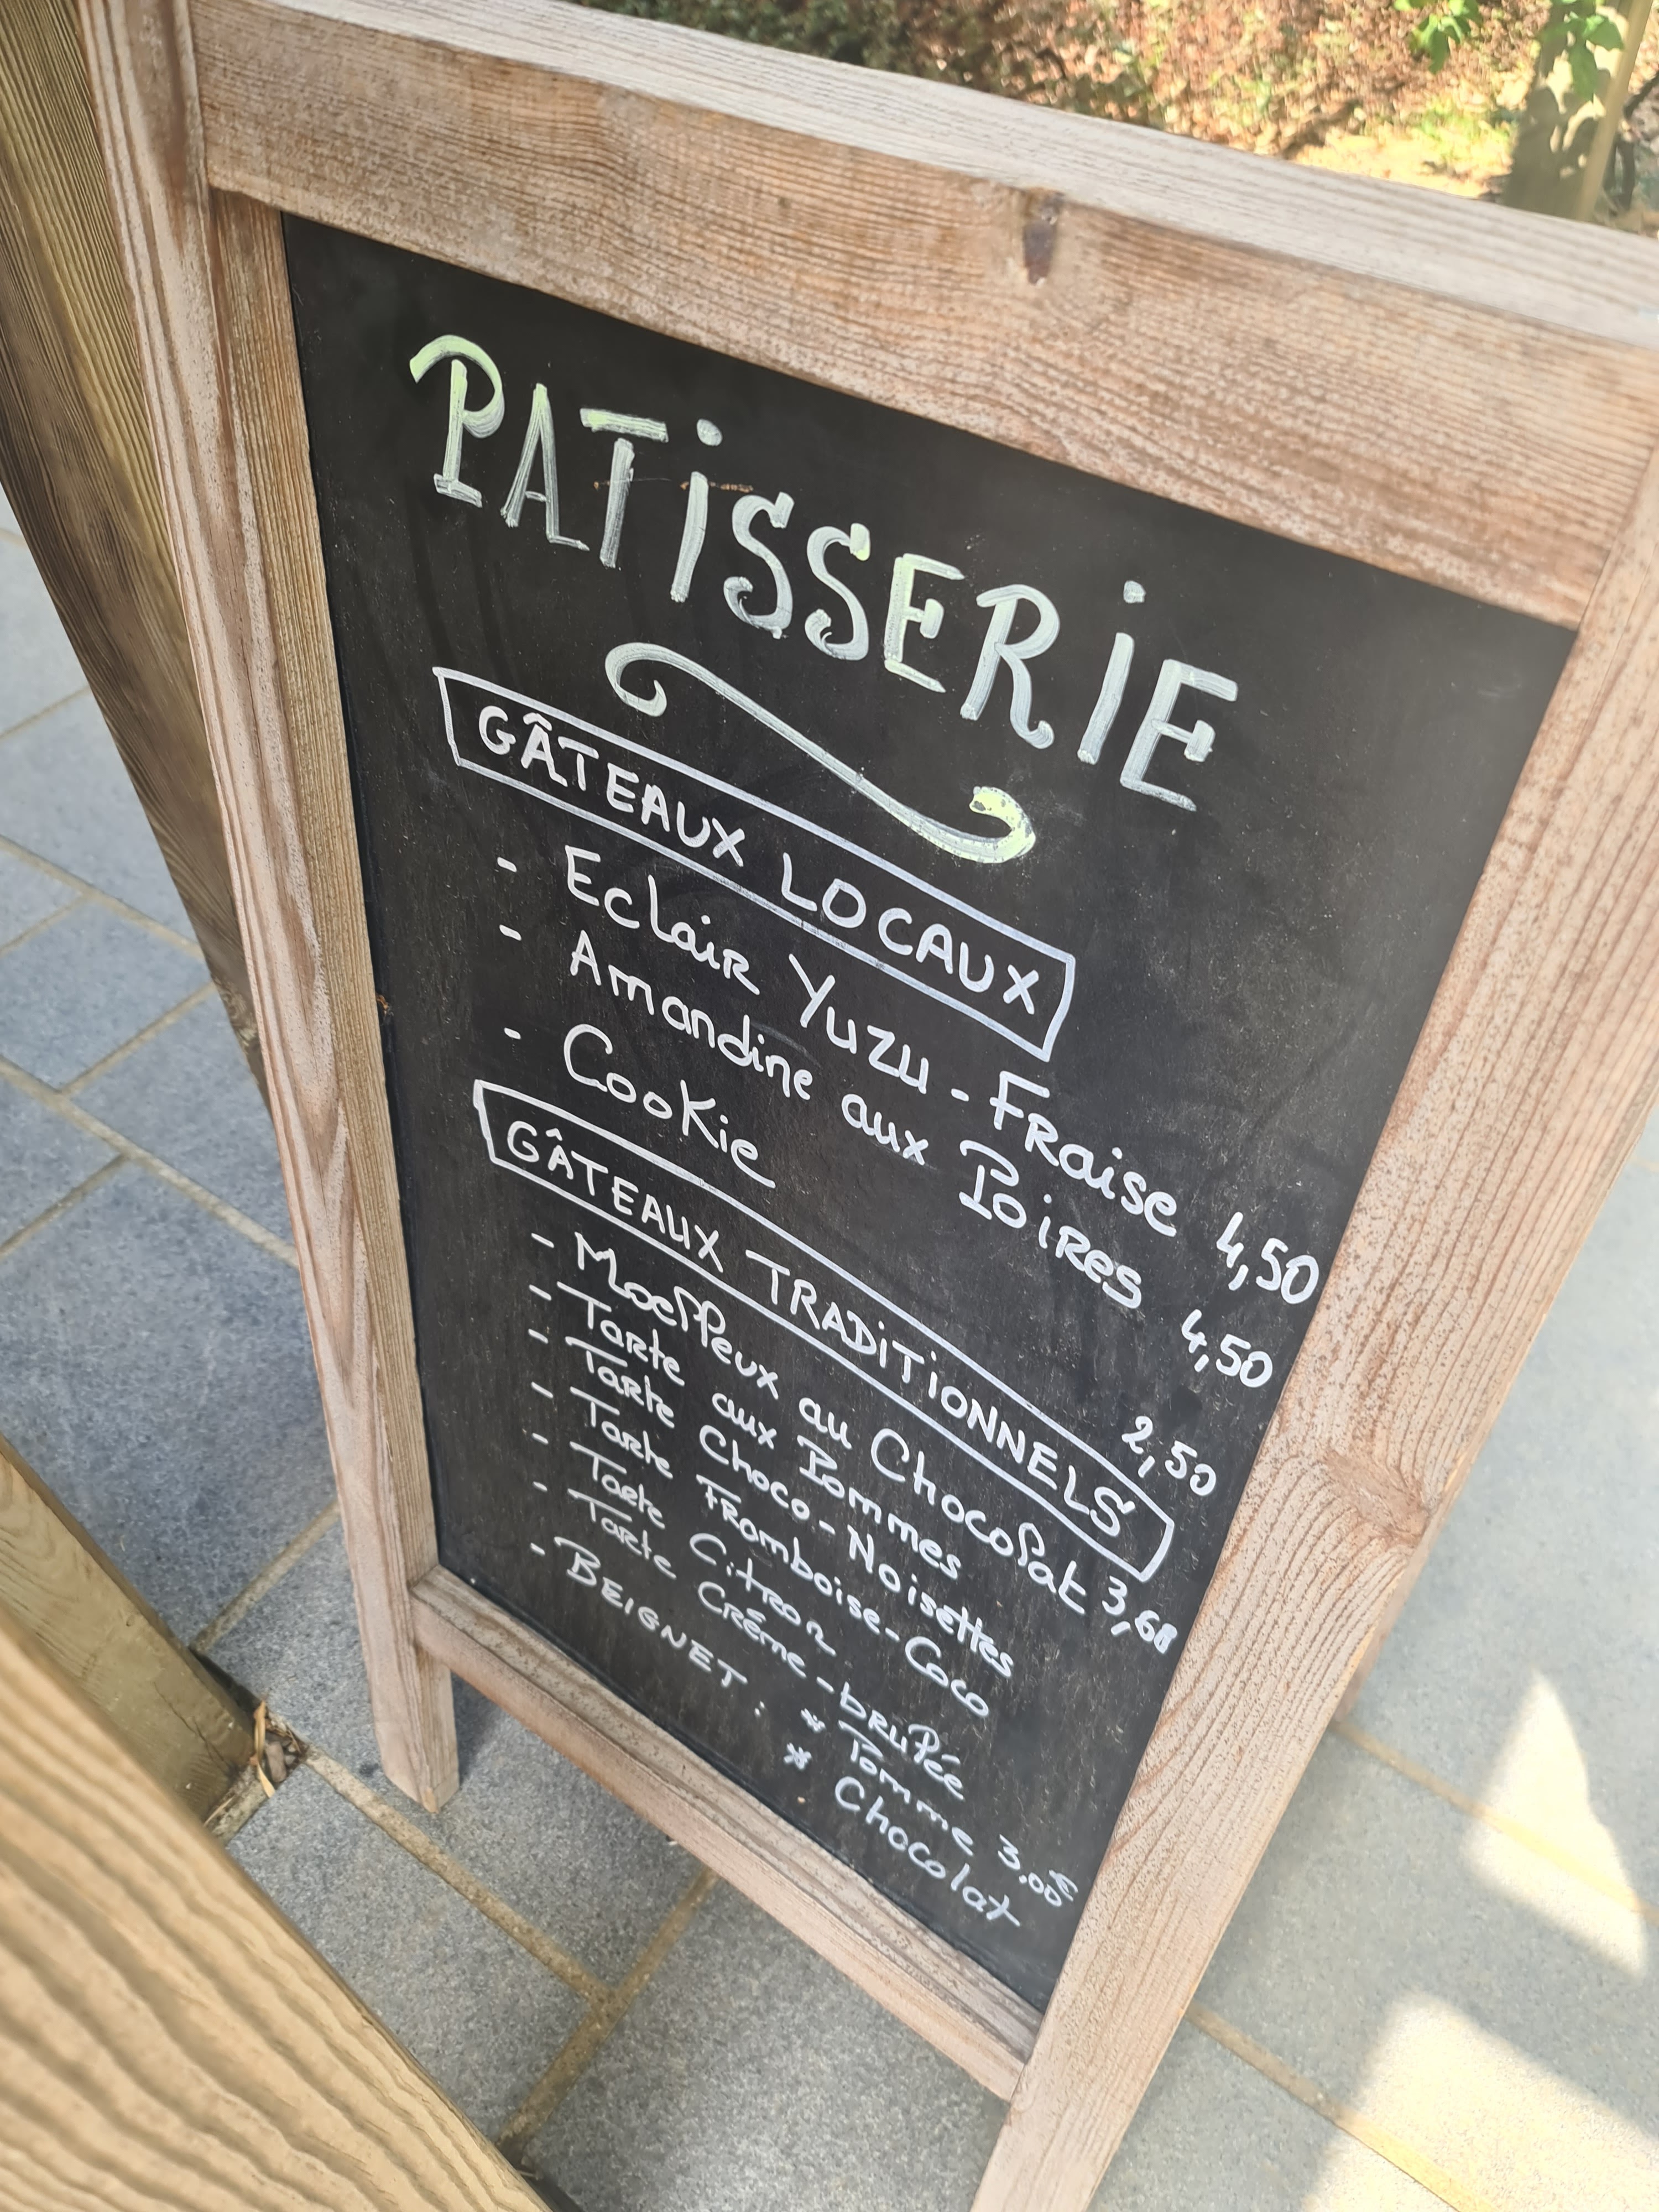 PATiSSERiE
GÂTEAUX LOCAUX
- Eclair Yuzu - Fraise 4,50
- Amandine aux Poires 4,50
- Cookie 2,50
GÂTEAUX TRADiTiONNELS
- Moelleux au Chocolat 3,60
- Tarte aux Pommes
- Tarte Choco-Noisettes
- Tarte Framboise-Coco
- Tarte Citron
- Tarte Crème-brulée
- BEIGNET : * Pomme 3.00€
* Chocolat